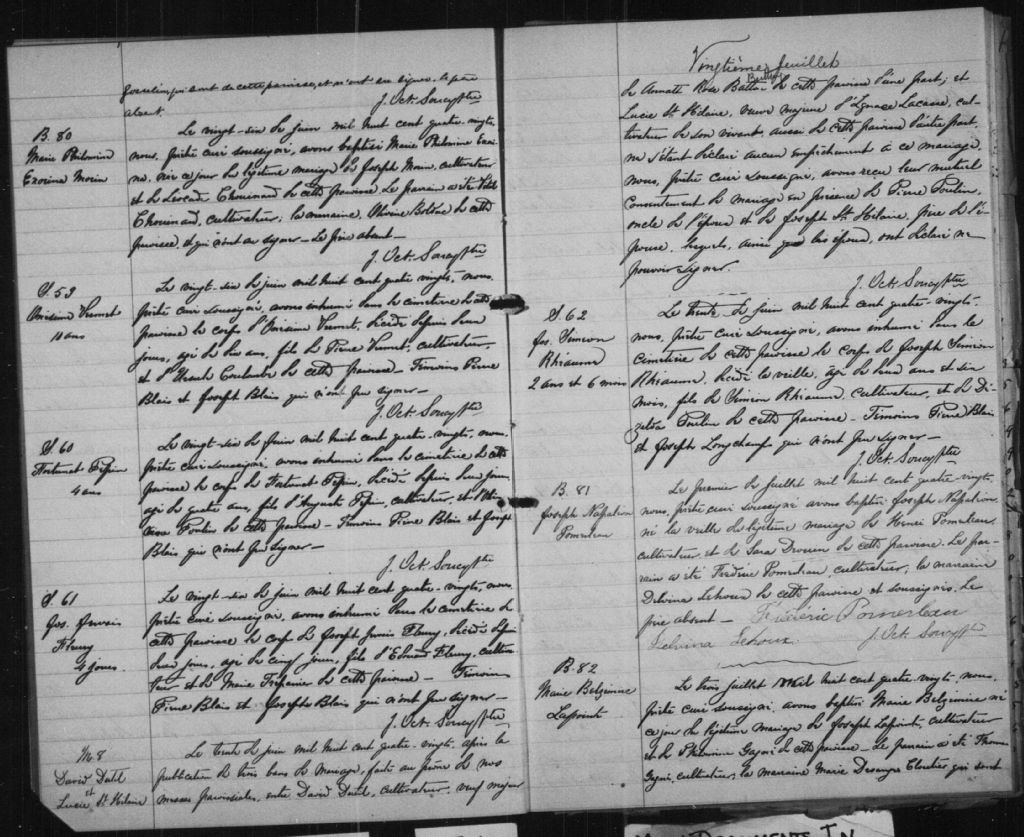 Josselin qui sont de cette paroisse, et n'ont su signer. le père
absent.
J. Oct. Soucy Ptre
B. 80
Marie Philomène
Exorina Morin
Le vingt-six de juin mil huit cent quatre-vingts,
nous, prêtre curé soussigné, avons baptisé Marie Philomène Exori-
na, née ce jour du légitime mariage de Joseph Morin, cultivateur
et de Léocade Chouinard de cette paroisse. Le parrain a été
Chouinard, cultivateur; la marraine, Olivine Bolduc de cette
paroisse, et qui n'ont su signer — Le père absent —
J. Oct. Soucy Ptre
S. 59
10 ans
Le vingt-six de juin mil huit cent quatre-vingts, nous,
prêtre curé soussigné, avons inhumé dans le cimetière de cette
paroisse le corps d'Onésime décédé depuis deux
jours, agé de dix ans, fils de Pierre cultivateur,
et d'Ursule Coulombe de cette paroisse — Témoins Pierre
Blais et Joseph Blais qui n'ont pu signer —
J. Oct. Soucy Ptre
S. 60
Fortunat Pépin
4 ans
Le vingt-six de juin mil huit cent quatre-vingts, nous,
prêtre curé soussigné, avons inhumé dans le cimetière de cette
paroisse le corps de Fortunat Pépin, décédé depuis deux jours,
agé de quatre ans, fils d'Auguste Pépin, cultivateur, et d'
Poulin de cette paroisse — Témoins Pierre Blais et Joseph
Blais qui n'ont pu signer —
J. Oct. Soucy Ptre
S. 61
Jos. Gervais
Fleury
4 jours.
Le vingt-six de juin mil huit cent quatre-vingts, nous
prêtre curé soussigné, avons inhumé dans le cimetière de
cette paroisse le corps de Joseph Gervais Fleury, décédé depuis
deux jours, agé de cinq jours, fils d'Edouard Fleury, cultiva-
teur et de Marie Trépanier de cette paroisse — Témoins
Pierre Blais et Joseph Blais qui n'ont pu signer —
J. Oct. Soucy Ptre
M. 8
David Dutil
et
Lucie St Hilaire
Le trente de juin mil huit cent quatre-vingts, après la
publication de trois bans de mariage, faite au prône de nos
messes paroissiales, entre David Dutil, cultivateur, veuf majeur
Vingtième feuillet
de Annatte Rose de cette paroisse d'une part; et
Lucie St Hilaire, veuve majeure d'Ignace Lacasse, cul-
tivateur de son vivant, aussi de cette paroisse d'autre part,
ne s'étant déclaré aucun empêchement à ce mariage,
nous, prêtre curé soussigné, avons reçu leur mutuel
consentement de mariage en présence de Pierre Poulin,
oncle de l'époux et de Joseph St. Hilaire, père de l'é-
pouse, lesquels, ainsi que les époux, ont déclaré ne
pouvoir signer.
J. Oct. Soucy Ptre
S. 62
Jos. Siméon
Rhéaume
2 ans et 6 mois
Le trente de juin mil huit cent quatre-vingts,
nous, prêtre curé soussigné, avons inhumé dans le
cimetière de cette paroisse le corps de Joseph Siméon
Rhéaume, décédé la veille, agé de deux ans et six
mois, fils de Siméon Rhéaume, cultivateur, et de
Poulin de cette paroisse — Témoins Pierre Blais
et Joseph Longchamp qui n'ont pu signer —
J. Oct. Soucy Ptre
B. 81
Joseph Napoléon
Pomerleau
Le premier de juillet mil huit cent quatre vingts,
nous, prêtre curé soussigné avons baptisé Joseph Napoléon,
né la veille du légitime mariage de Henri Pomerleau,
cultivateur, et de Sara Drouin de cette paroisse. Le par-
rain a été Frédéric Pomerleau, cultivateur, la marraine
Delvina Lehoux de cette paroisse et soussignés. Le
père absent — Frédéric Pomerleau
Delvina Lehoux J. Oct. Soucy Ptre
B. 82
Marie Belzémire
Lapointe
Le trois juillet mil huit cent quatre vingts nous,
prêtre curé soussigné, avons baptisé Marie Belzémire né
ce jour du légitime mariage de Joseph Lapointe, cultivateur
et de Philomène Gagné de cette paroisse — Le parrain a été Thomas
Gagné, cultivateur, la marraine Marie Desanges Cloutier qui sont
DOCUMENTS IN